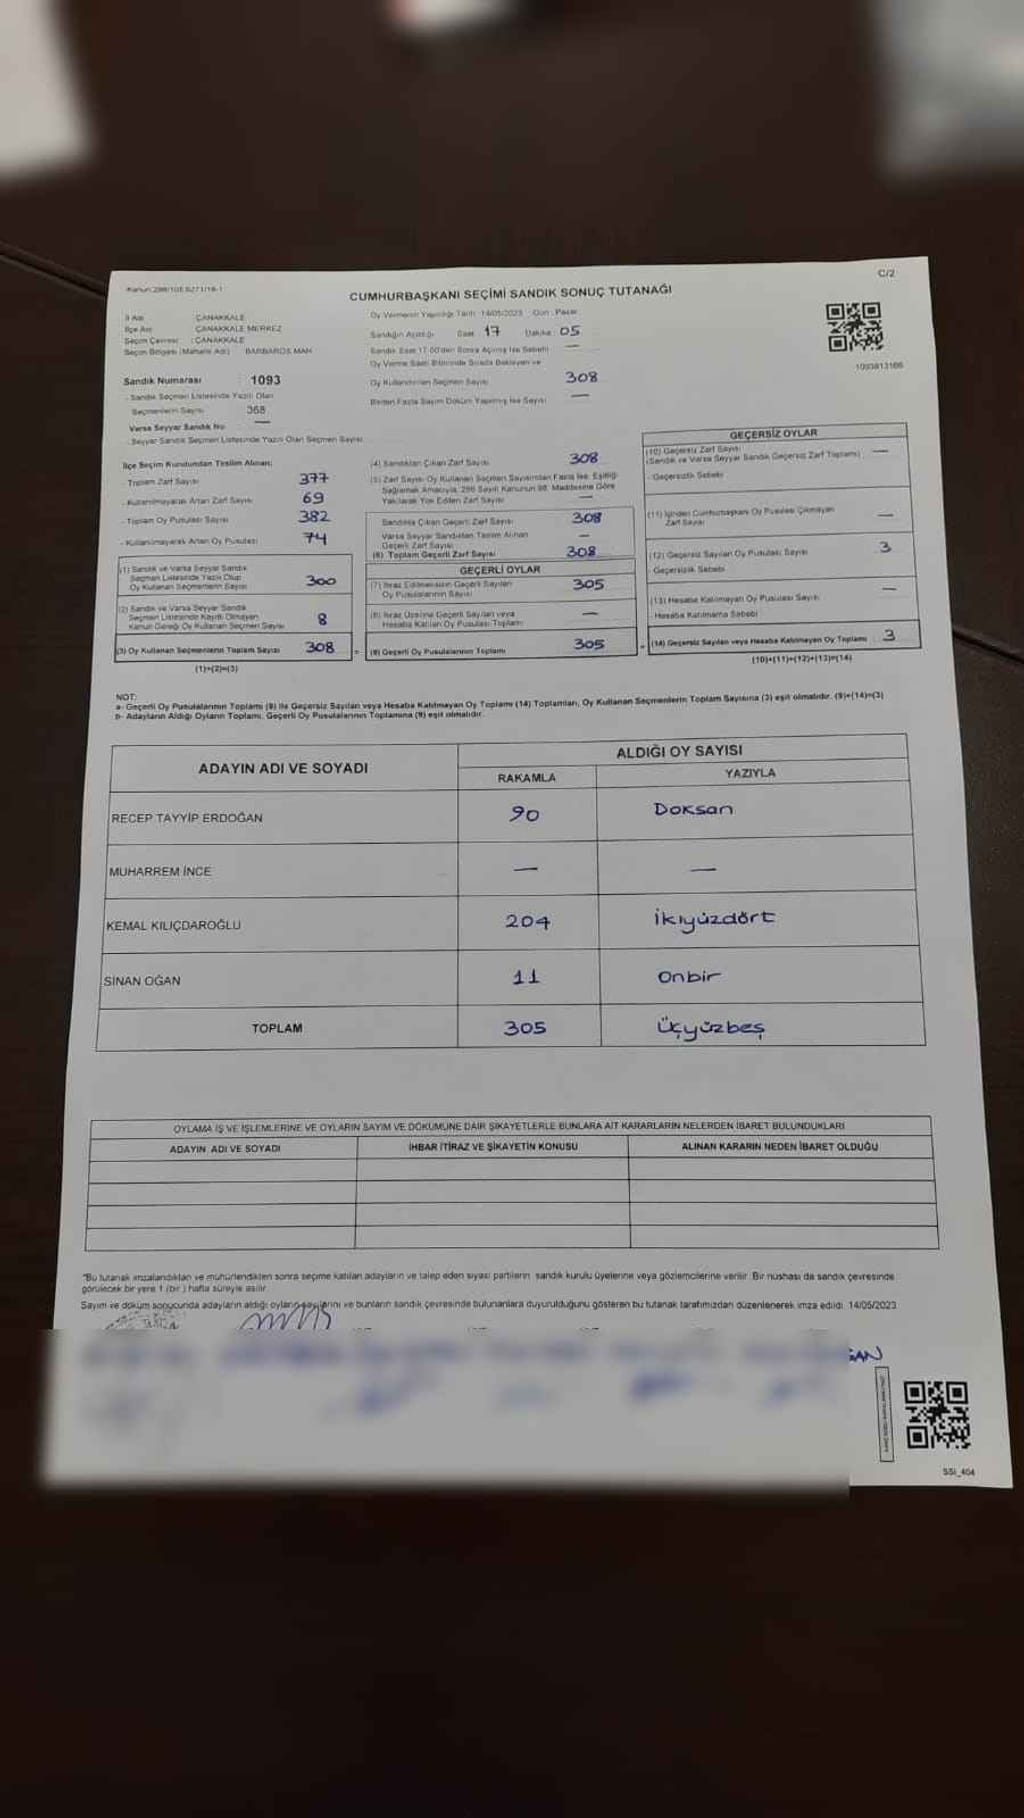 Kanun:298/105,6271/18-1
C/2
CUMHURBAŞKANI SEÇİMİ SANDIK SONUÇ TUTANAĞI
İl Adı : ÇANAKKALE
İlçe Adı : ÇANAKKALE MERKEZ
Seçim Çevresi : ÇANAKKALE
Seçim Bölgesi (Mahalle Adı) : BARBAROS MAH.
Oy Vermenin Yapıldığı Tarih: 14/05/2023 Gün : Pazar
Sandığın Açıldığı Saat: 17 Dakika: 05
Sandık Saat 17:00'den Sonra Açılmış İse Sebebi —
Oy Verme Saati Bitiminde Sırada Bekleyen ve
Oy Kullandırılan Seçmen Sayısı 308
Birden Fazla Sayım Döküm Yapılmış İse Sayısı —
1093813166
Sandık Numarası : 1093
- Sandık Seçmen Listesinde Yazılı Olan
Seçmenlerin Sayısı 368
Varsa Seyyar Sandık No —
- Seyyar Sandık Seçmen Listesinde Yazılı Olan Seçmen Sayısı
İlçe Seçim Kurulundan Teslim Alınan;
- Toplam Zarf Sayısı 377
- Kullanılmayarak Artan Zarf Sayısı 69
- Toplam Oy Pusulası Sayısı 382
- Kullanılmayarak Artan Oy Pusulası 74
(1) Sandık ve Varsa Seyyar Sandık
Seçmen Listesinde Yazılı Olup
Oy Kullanan Seçmenlerin Sayısı 300
(2) Sandık ve Varsa Seyyar Sandık
Seçmen Listesinde Kayıtlı Olmayan
Kanun Gereği Oy Kullanan Seçmen Sayısı 8
(3) Oy Kullanan Seçmenlerin Toplam Sayısı 308
(1)+(2)=(3)
(4) Sandıktan Çıkan Zarf Sayısı 308
(5) Zarf Sayısı Oy Kullanan Seçmen Sayısından Fazla İse, Eşitliği
Sağlamak Amacıyla, 298 Sayılı Kanunun 98. Maddesine Göre
Yakılarak Yok Edilen Zarf Sayısı —
Sandıkta Çıkan Geçerli Zarf Sayısı 308
Varsa Seyyar Sandıktan Teslim Alınan
Geçerli Zarf Sayısı —
(6) Toplam Geçerli Zarf Sayısı 308
GEÇERLİ OYLAR
(7) İtiraz Edilmeksizin Geçerli Sayılan
Oy Pusulalarının Sayısı 305
(8) İtiraz Üzerine Geçerli Sayılan veya
Hesaba Katılan Oy Pusulası Toplamı —
= (9) Geçerli Oy Pusulalarının Toplamı 305
GEÇERSİZ OYLAR
(10) Geçersiz Zarf Sayısı —
(Sandık ve Varsa Seyyar Sandık Geçersiz Zarf Toplamı)
- Geçersizlik Sebebi
(11) İçinden Cumhurbaşkanı Oy Pusulası Çıkmayan
Zarf Sayısı —
(12) Geçersiz Sayılan Oy Pusulası Sayısı 3
- Geçersizlik Sebebi
(13) Hesaba Katılmayan Oy Pusulası Sayısı —
- Hesaba Katılmama Sebebi
+ (14) Geçersiz Sayılan veya Hesaba Katılmayan Oy Toplamı 3
(10)+(11)+(12)+(13)=(14)
NOT:
a- Geçerli Oy Pusulalarının Toplamı (9) ile Geçersiz Sayılan veya Hesaba Katılmayan Oy Toplamı (14) Toplamları, Oy Kullanan Seçmenlerin Toplam Sayısına (3) eşit olmalıdır. (9)+(14)=(3)
b- Adayların Aldığı Oyların Toplamı, Geçerli Oy Pusulalarının Toplamına (9) eşit olmalıdır.
ADAYIN ADI VE SOYADI ALDIĞI OY SAYISI
RAKAMLA YAZIYLA
RECEP TAYYİP ERDOĞAN 90 Doksan
MUHARREM İNCE — —
KEMAL KILIÇDAROĞLU 204 İkiyüzdört
SİNAN OĞAN 11 Onbir
TOPLAM 305 Üçyüzbeş
OYLAMA İŞ VE İŞLEMLERİNE VE OYLARIN SAYIM VE DÖKÜMÜNE DAİR ŞİKAYETLERLE BUNLARA AİT KARARLARIN NELERDEN İBARET BULUNDUKLARI
ADAYIN ADI VE SOYADI İHBAR İTİRAZ VE ŞİKAYETİN KONUSU ALINAN KARARIN NEDEN İBARET OLDUĞU
*Bu tutanak imzalandıktan ve mühürlendikten sonra seçime katılan adayların ve talep eden siyasi partilerin sandık kurulu üyelerine veya gözlemcilerine verilir. Bir nüshası da sandık çevresinde
görülecek bir yere 1 (bir) hafta süreyle asılır.
Sayım ve döküm sonucunda adayların aldığı oyların sayılarını ve bunların sandık çevresinde bulunanlara duyurulduğunu gösteren bu tutanak tarafımızdan düzenlenerek imza edildi. 14/05/2023
SSI_404